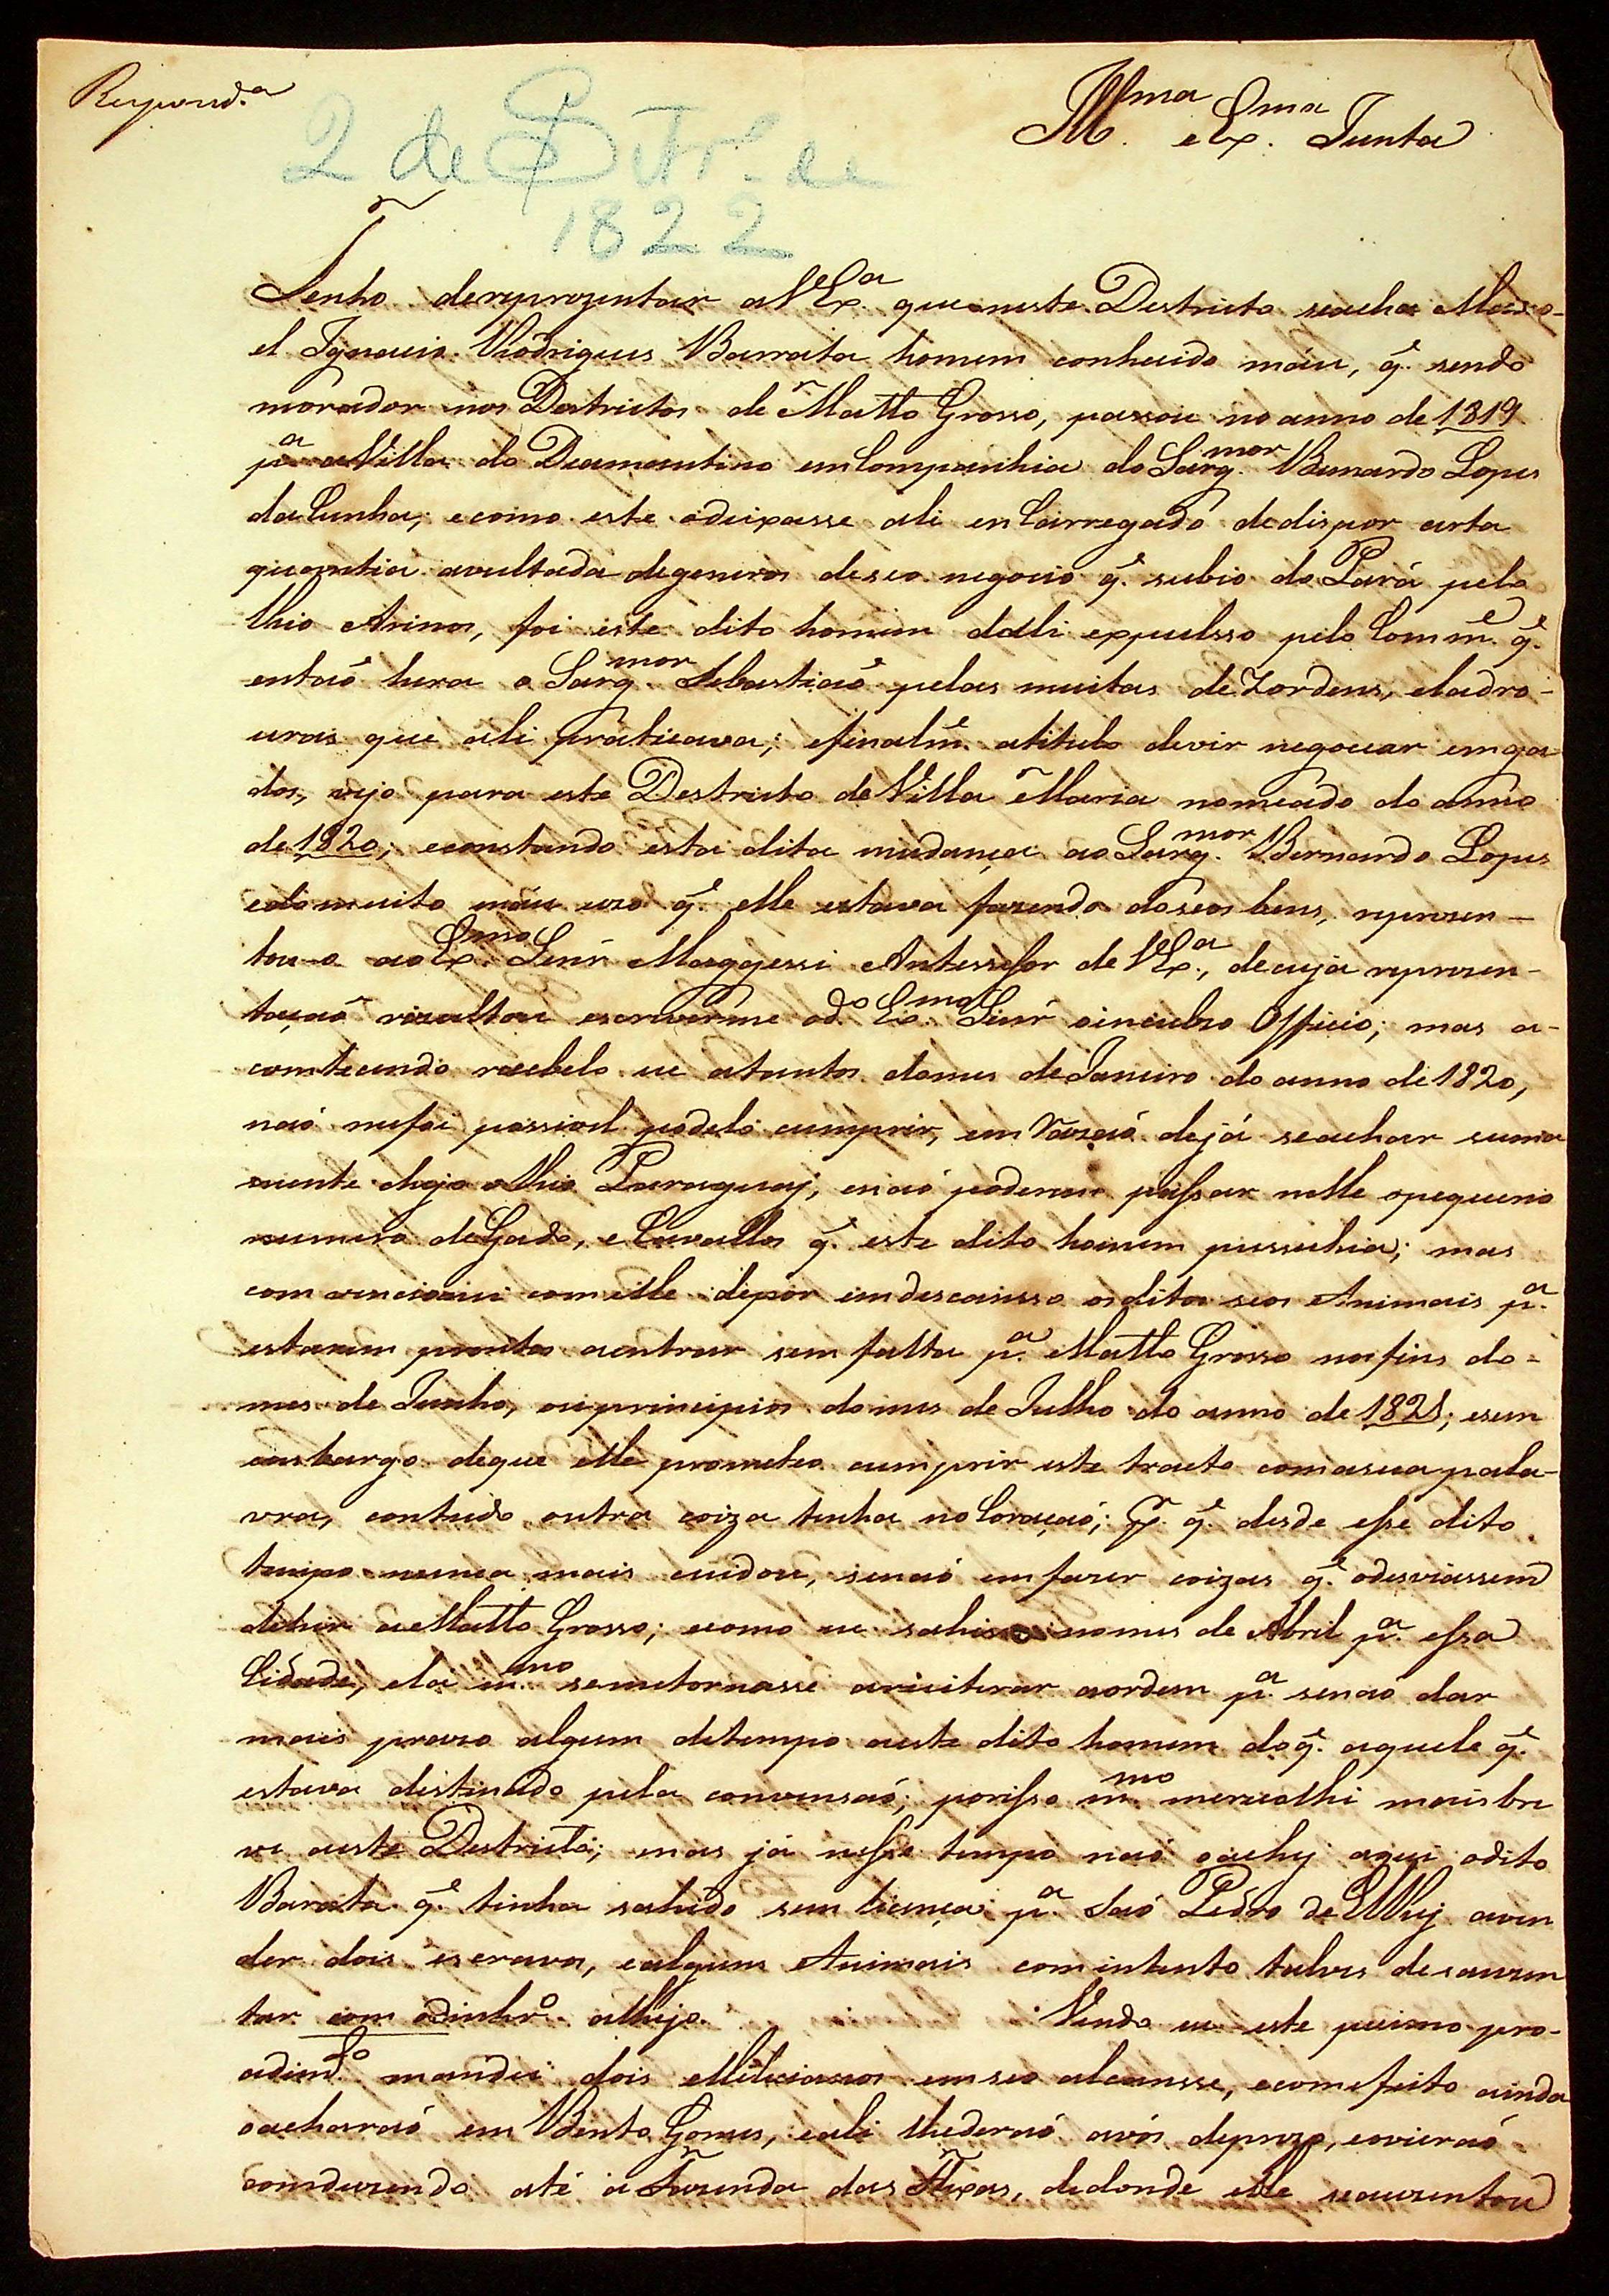 Respond.a
Ill.ma e Ex.ma Junta
2 de Setr.º de
1822
Tenho dereprezentar a V Ex.a que neste Destricto seacha Mano-
el Ignacio Rodrigues Barrata homem conhecido máu, q.e sendo
morador nos Destrictos de Matto Grosso, passou no anno de 1819
p.a a Villa do Diamantino em Companhia do Sarg.mor Bernardo Lopes
da Cunha; e como este odeixasse ali en Carregado dedispor certa
quantia avultada degeneros deseo negocio q.e subio do Pará pelo
Rio Arinos, foi este dito homem dali expulsso pelo Comm.e q.e
entaõ hera o Sarg.mor Sebastiaõ pelas muitas deZordens, eladro-
ueras que ali praticava; efinalm.e atitulo devir negociar emga
dos, vejo para este Destricto de Villa Maria nomeado do anno
de 1820; econstando esta dita mudança ao Sarg.mor Bernardo Lopes
edo muito máu uzo q.e elle estava fazendo doseos bens, reprezen-
tou-o ao Ex.mo Senr Maggessi Antessessor de V Ex.a, decuja reprezen-
taçaõ rezultou escreverme od.o Ex.mo Senr oincluzo Officio; mas a-
contecendo recebelo eu atantos domes de Janeiro do anno de 1820,
naõ mefoi possivel podelo cumprir, em Razaõ dejá seachar suma
mente chejo o Rio Paraguaj, enaõ poderem passar nelle opequeno
numero deGado, e Cavallos q.e este dito homem pussuhia; mas
com vencionei comelle depor emdescansso osditos seos Animais p.a
estarem prontos aentrar sem falta p.a Matto Grosso nosfins do-
mes de Junho, ouprincipios domes de Julho do anno de 1821; esem
embargo deque elle prometeo cumprir este tracto comasuapala-
vra, contudo outra coiza tinha no Coraçaõ; p.r q.e desde esse dito
tempo nunca mais cuidou, senaõ emfazer coizas q.e odesviassem
dehir a Matto Grosso; ecomo eu sahisse nomes de Abril p.a essa
Cidade, elá m.mo semetornasse areiterar aordem p.a senaõ dar
mais prazo algum detempo aeste dito homem doq.e aquele q.e
estava distinado pela convensaõ; porisso m.mo merecolhi maisbre
ve aeste Destricto; mas já nesse tempo naõ oachej aqui odito
Barata q.e tinha sahido sem licença p.a Saõ Pedro de ElRej aven
der dois escravos, ealguns Animais com intento talves deseauzen
tar com odinhr.o alhejo. Vendo eu este pecimo pro-
cedim.to mandei dois Milicianos emseo alcansse, ecomefeito ainda
oacharaõ em Bento Gomes, eali lhederaõ avós deprezo, eovieraõ
comduzindo até á Fazenda das Flexas, dedonde elle seauzentou